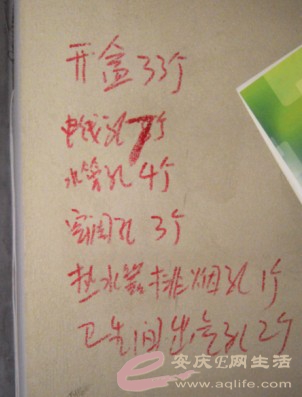 开盒33个
电线孔7个
水管孔4个
空调孔 3个
热水器排烟孔1个
卫生间出气孔2个
安庆E网生活
www.aqlife.com